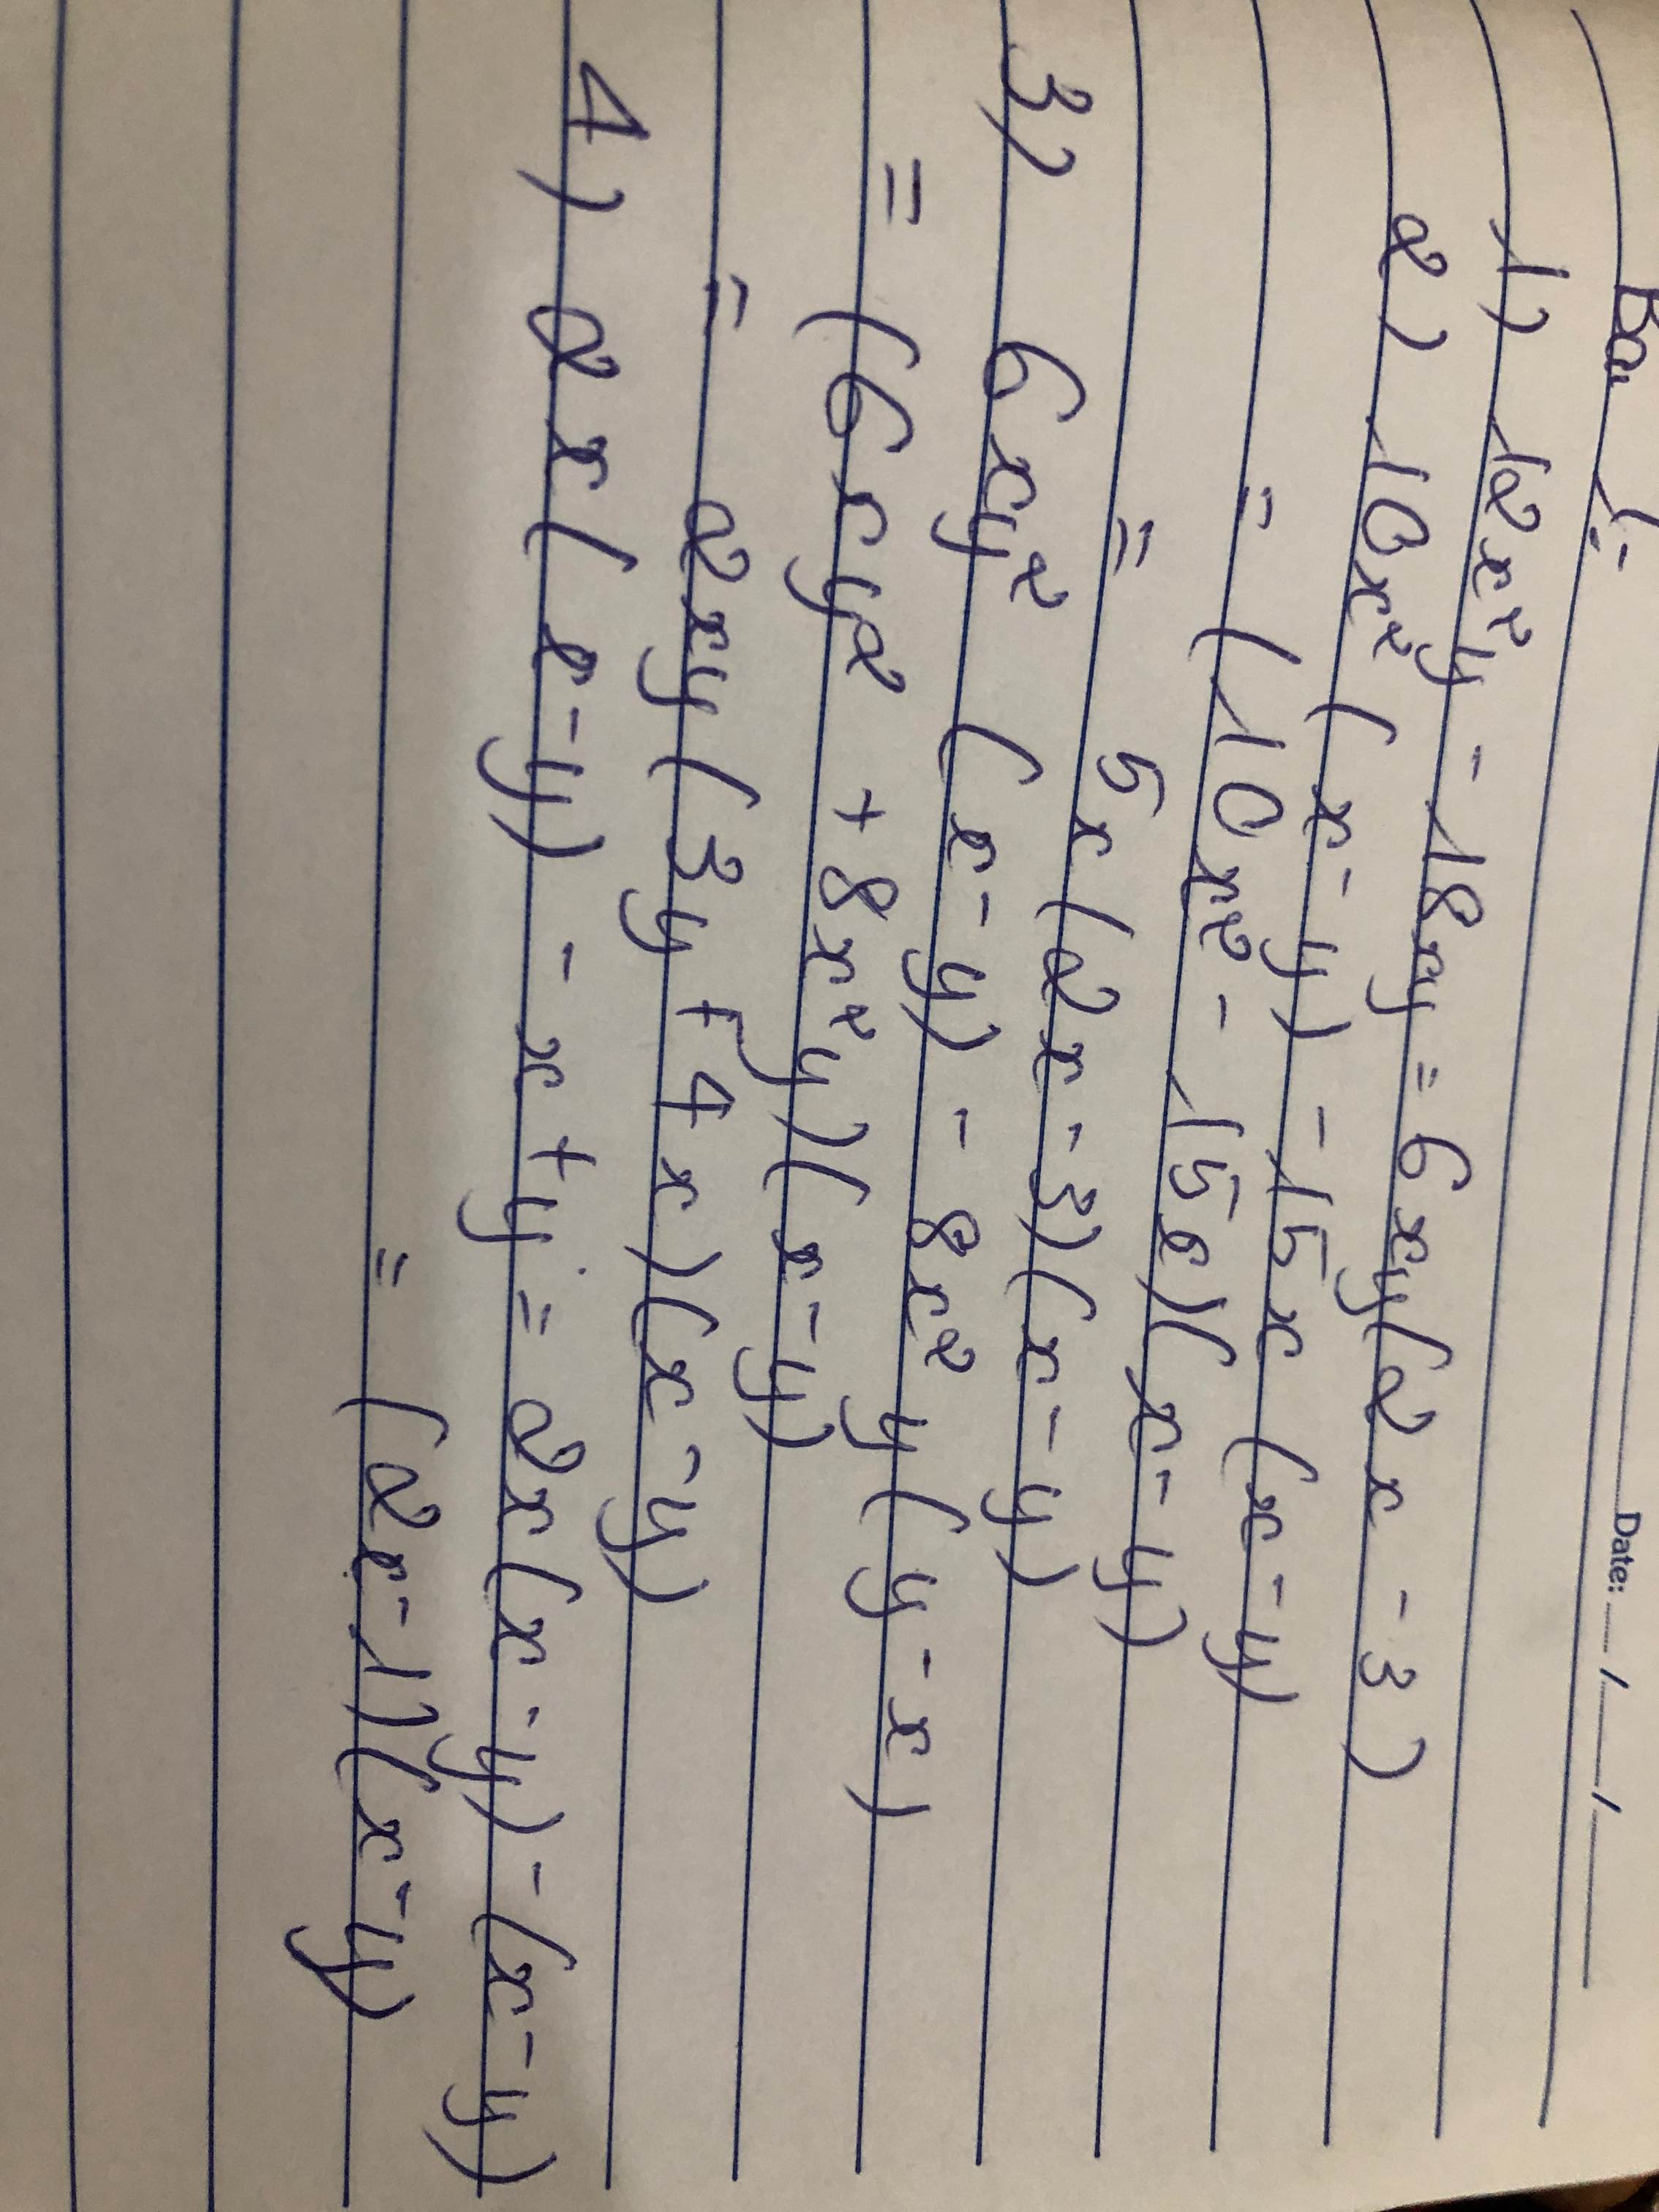 Date: __/__/__
Bài 1:
1) 12x²y - 18xy = 6xy(2x - 3)
2) 10x²(x-y) - 15x(x-y)
= (10x² - 15x)(x-y)
= 5x(2x-3)(x-y)
3) 6xy²(x-y) - 8x²y(y-x)
= (6xy² + 8x²y)(x-y)
= 2xy(3y+4x)(x-y)
4) 2x(x-y) - x+y = 2x(x-y)-(x-y)
= (2x-1)(x-y)